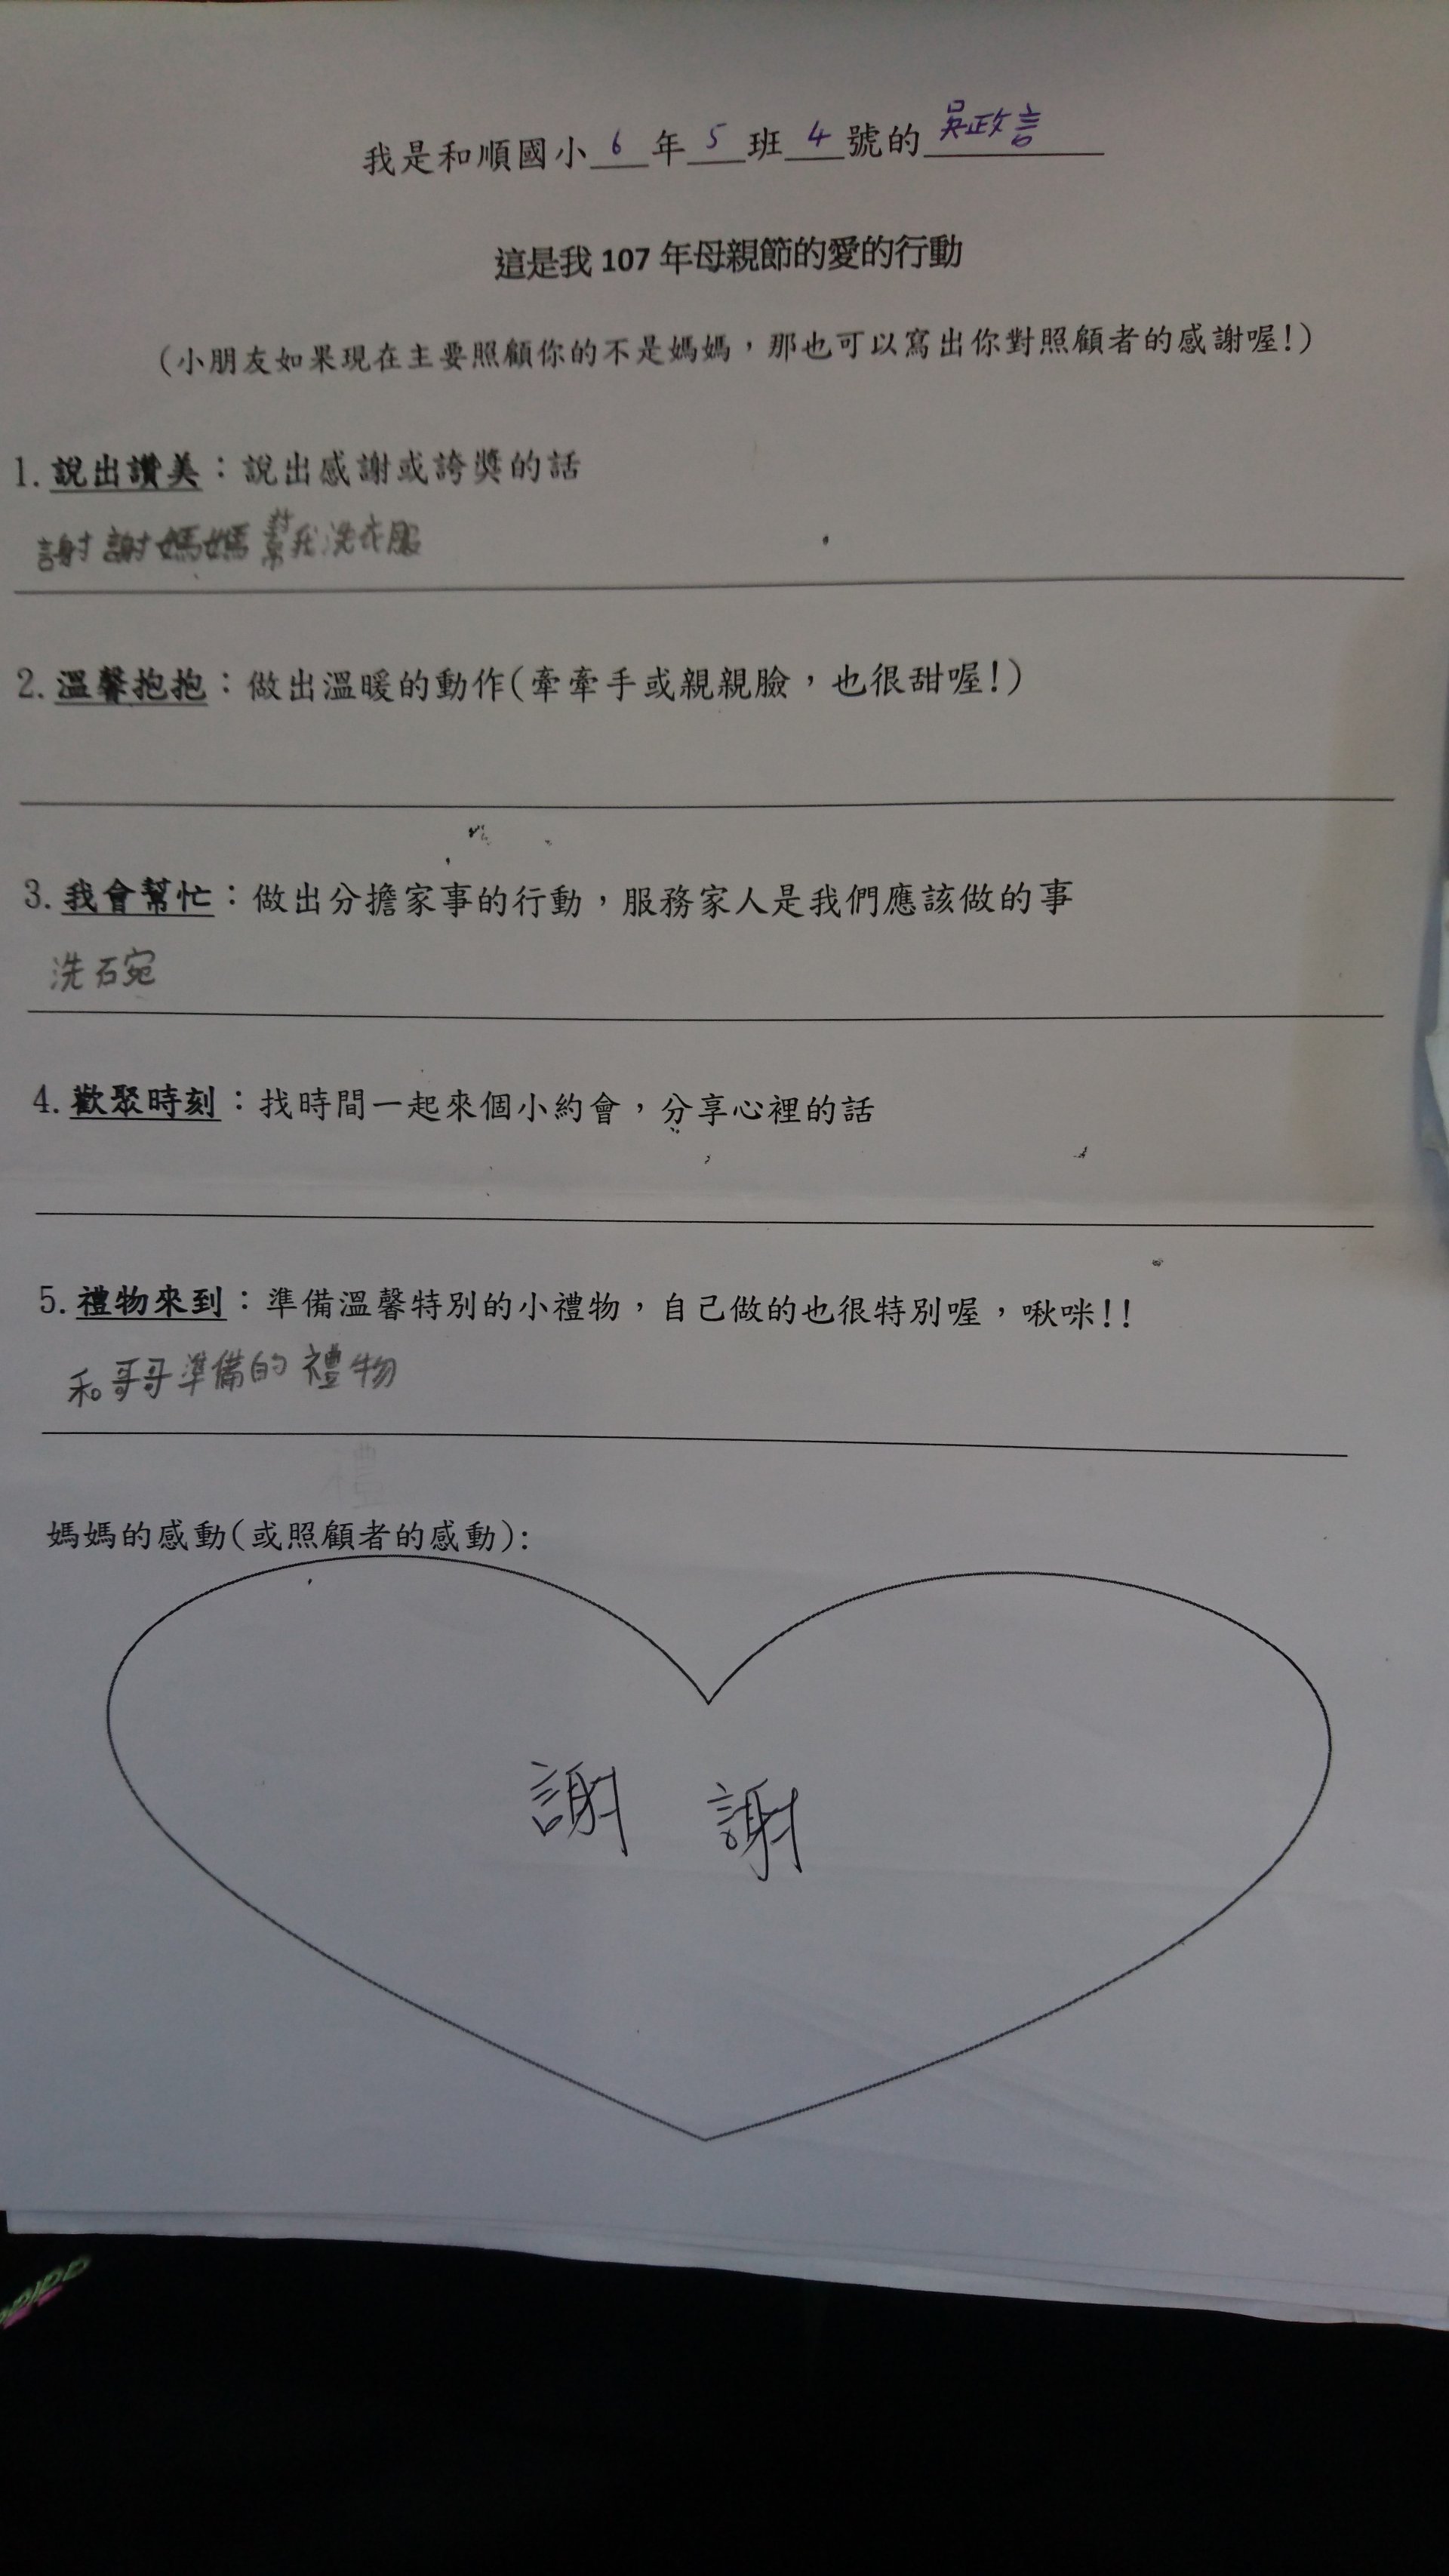 我是和順國小 6 年 5 班 4 號的 吳政言
這是我 107 年母親節的愛的行動
(小朋友如果現在主要照顧你的不是媽媽，那也可以寫出你對照顧者的感謝喔!)
1. 說出讚美：說出感謝或誇獎的話
謝謝媽媽幫我洗衣服
2. 溫馨抱抱：做出溫暖的動作(牽牽手或親親臉，也很甜喔!)
3. 我會幫忙：做出分擔家事的行動，服務家人是我們應該做的事
洗碗
4. 歡聚時刻：找時間一起來個小約會，分享心裡的話
5. 禮物來到：準備溫馨特別的小禮物，自己做的也很特別喔，啾咪!!
和哥哥準備的禮物
禮
媽媽的感動(或照顧者的感動):
謝 謝